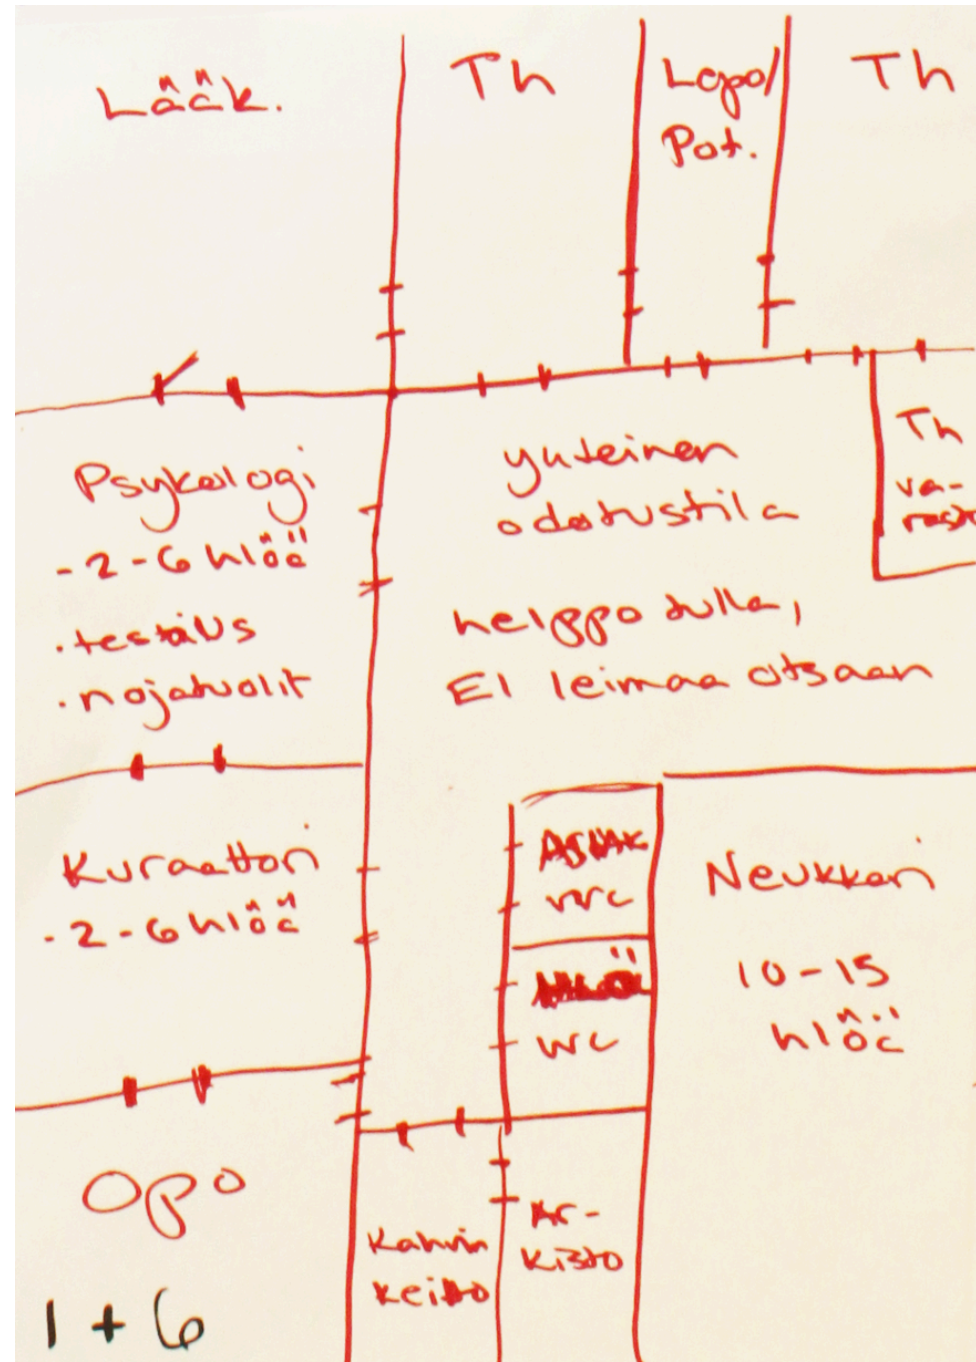 Lääk.
Th
Lepo/
Pot.
Th
Psykologi
- 2-6 hlöä
· testaus
· nojatuolit
yhteinen
odotustila
helppo tulla,
EI leimaa otsaan
Th
va-
rasto
Kuraattori
- 2-6 hlöä
ASIAK
WC
WC
Neukkari
10-15
hlöä
Opo
Kahvin
keitto
Ar-
kisto
1 + 6